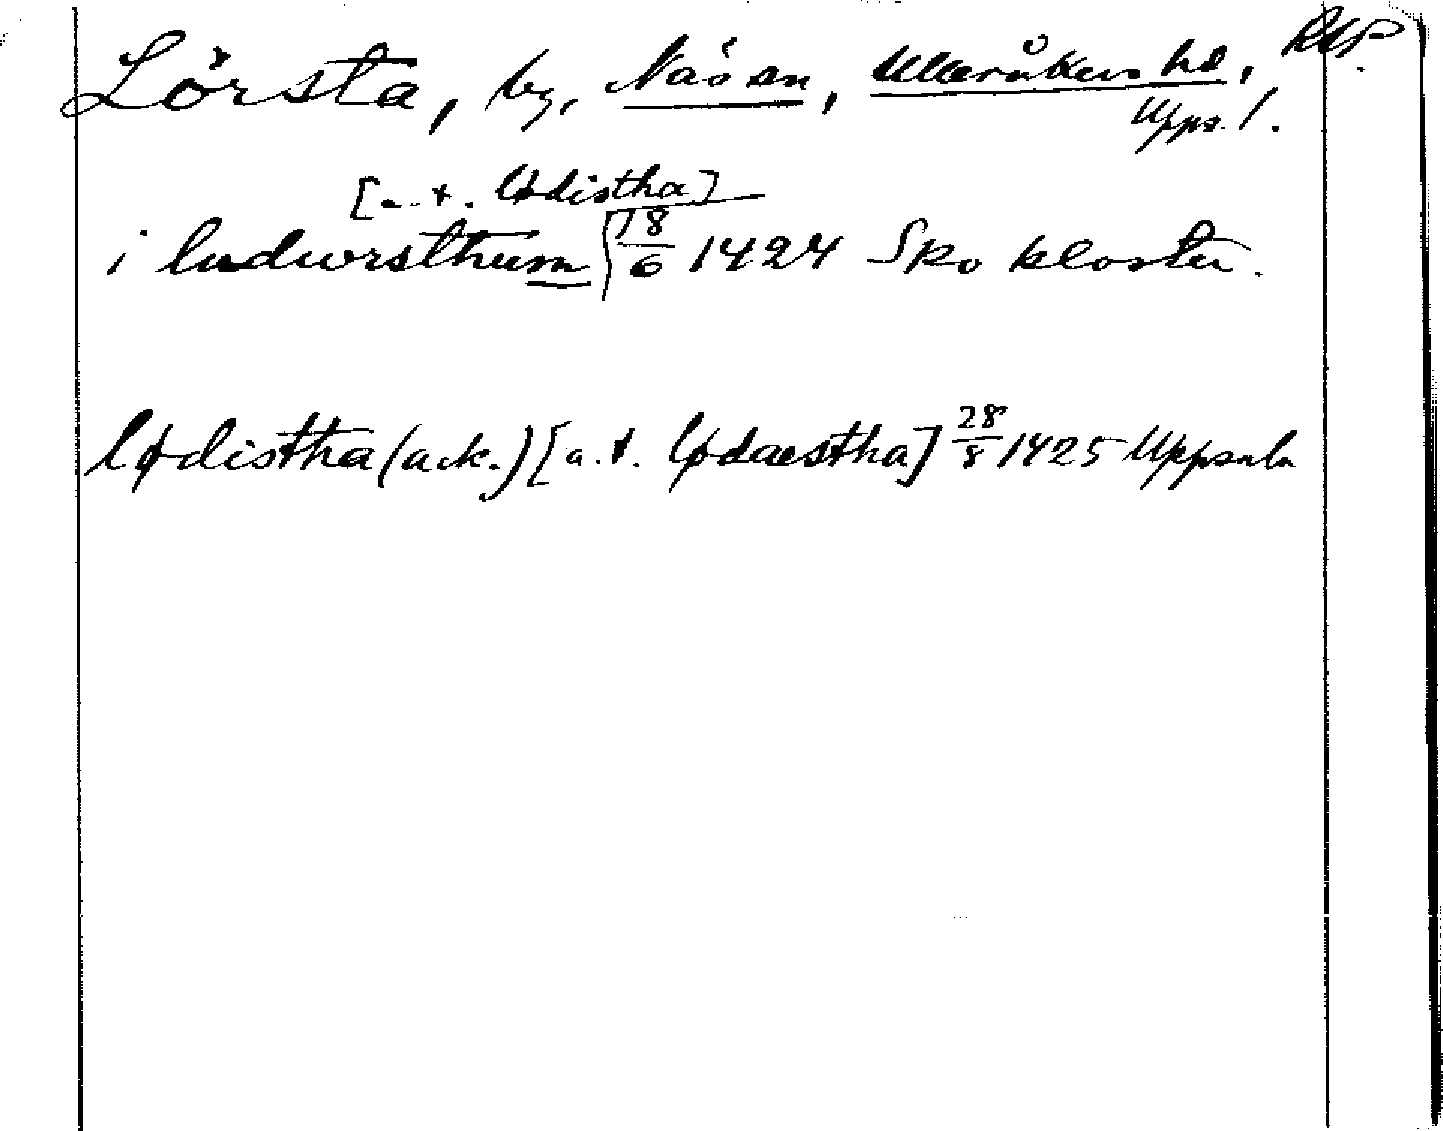 Lörsta, by, Näs sn, Ulleråkers hd, RAP.
Upps. l.
[a. t. lødistha]
i ludwrsthum 18/6 1424 Sko kloster.
lødistha (ack.) [a. t. lødaestha] 28/8 1425 Uppsala